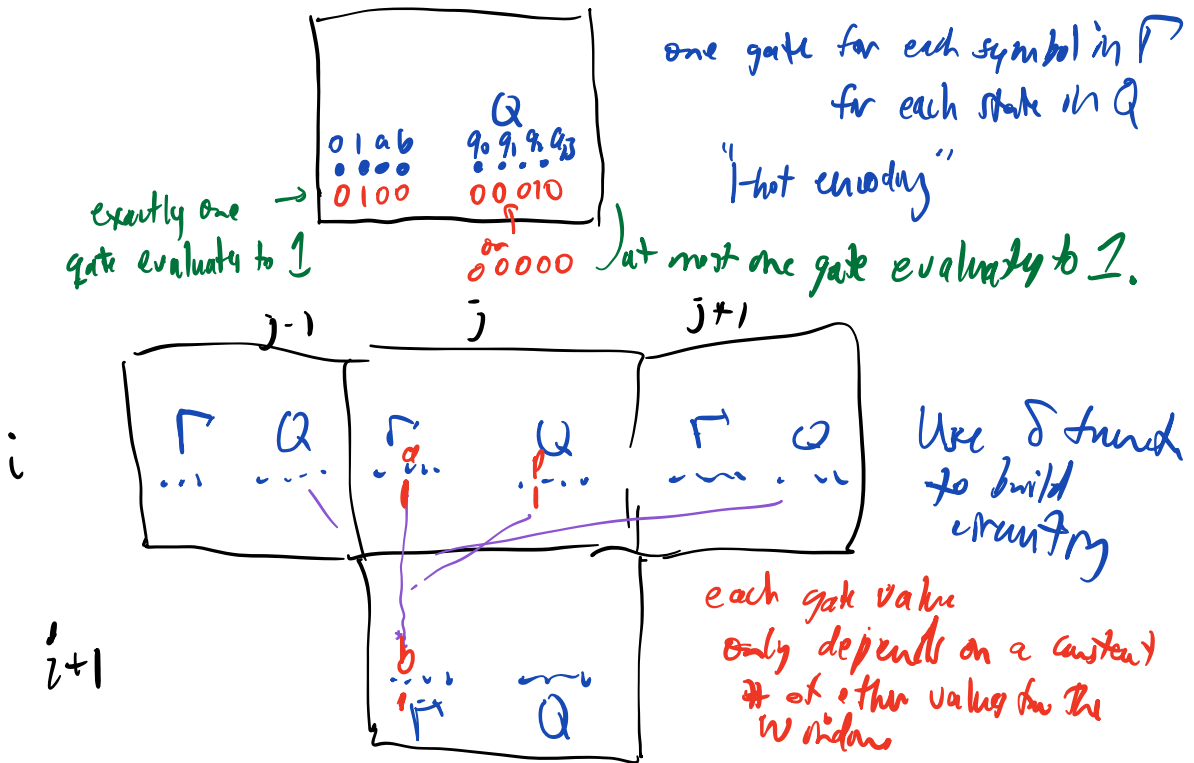 one gate for each symbol in Γ
for each state in Q
"1-hot encoding"
Q
0 1 a b
q₀ q₁
0 1 0 0
0 0 0 1 0
exactly one
gate evaluates to 1
or
0 0 0 0 0
at most one gate evaluates to 1.
j-1
j
j+1
i
Γ Q
Γ Q
Γ Q
a
p
1
1
Use δ
to build
circuitry
i+1
b
1
Γ Q
each gate value
only depends on a constant
# of other values from the
window